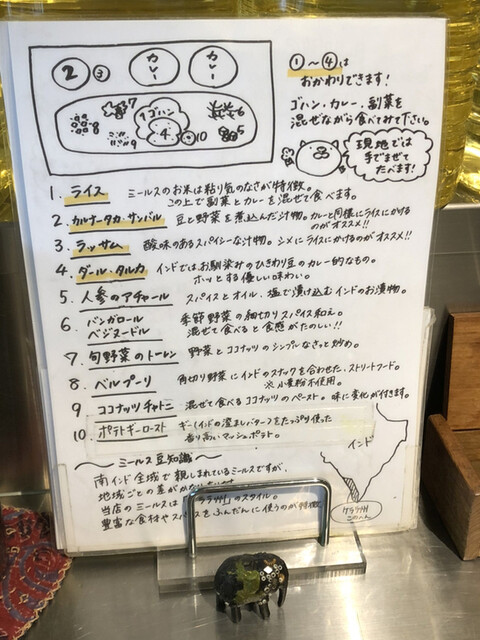 ② ③ カレー カレー
7 1ゴハン 6
8 4 10 5
9
①〜④は
おかわりできます!
ゴハン、カレー、副菜を
混ぜながら食べてみて下さい。
現地では
手でまぜて
たべます!
1. ライス ミールスのお米は粘り気のなさが特徴。
この上で副菜とカレーを混ぜて食べます。
2. カルナータカ・サンバル 豆と野菜を煮込んだ汁物。カレーと同様にライスにかける
のがオススメ!!
3. ラッサム 酸味のあるスパイシーな汁物。シメにライスにかけるのがオススメ!!
4. ダール・タルカ インドではお馴染みのひきわり豆のカレー的なもの。
ホッとする優しい味わい。
5. 人参のアチャール スパイスとオイル、塩で漬け込むインドのお漬物。
6 バンガロール 季節野菜の細切りスパイス和え。
ベジヌードル 混ぜて食べると食感がたのしい!!
7 旬野菜のトーレン 野菜とココナッツのシンプルなさっと炒め。
8 ベルプーリ 角切り野菜にインドのスナックを合わせた、ストリートフード。
※小麦粉不使用。
9 ココナッツチャトニ 混ぜて食べるココナッツのペースト。味に変化が付きます。
10. ポテトギーロースト ギー(インドの澄ましバター)をたっぷり使った
香り高いマッシュポテト。
〜ミールス豆知識〜
南インド全域で親しまれているミールスですが、
地域ごとの差がかなり
当店のミールスは「ケララ州」のスタイル。
豊富な食材やスパイスをふんだんに使うのが特徴
インド
ケララ州
このへん